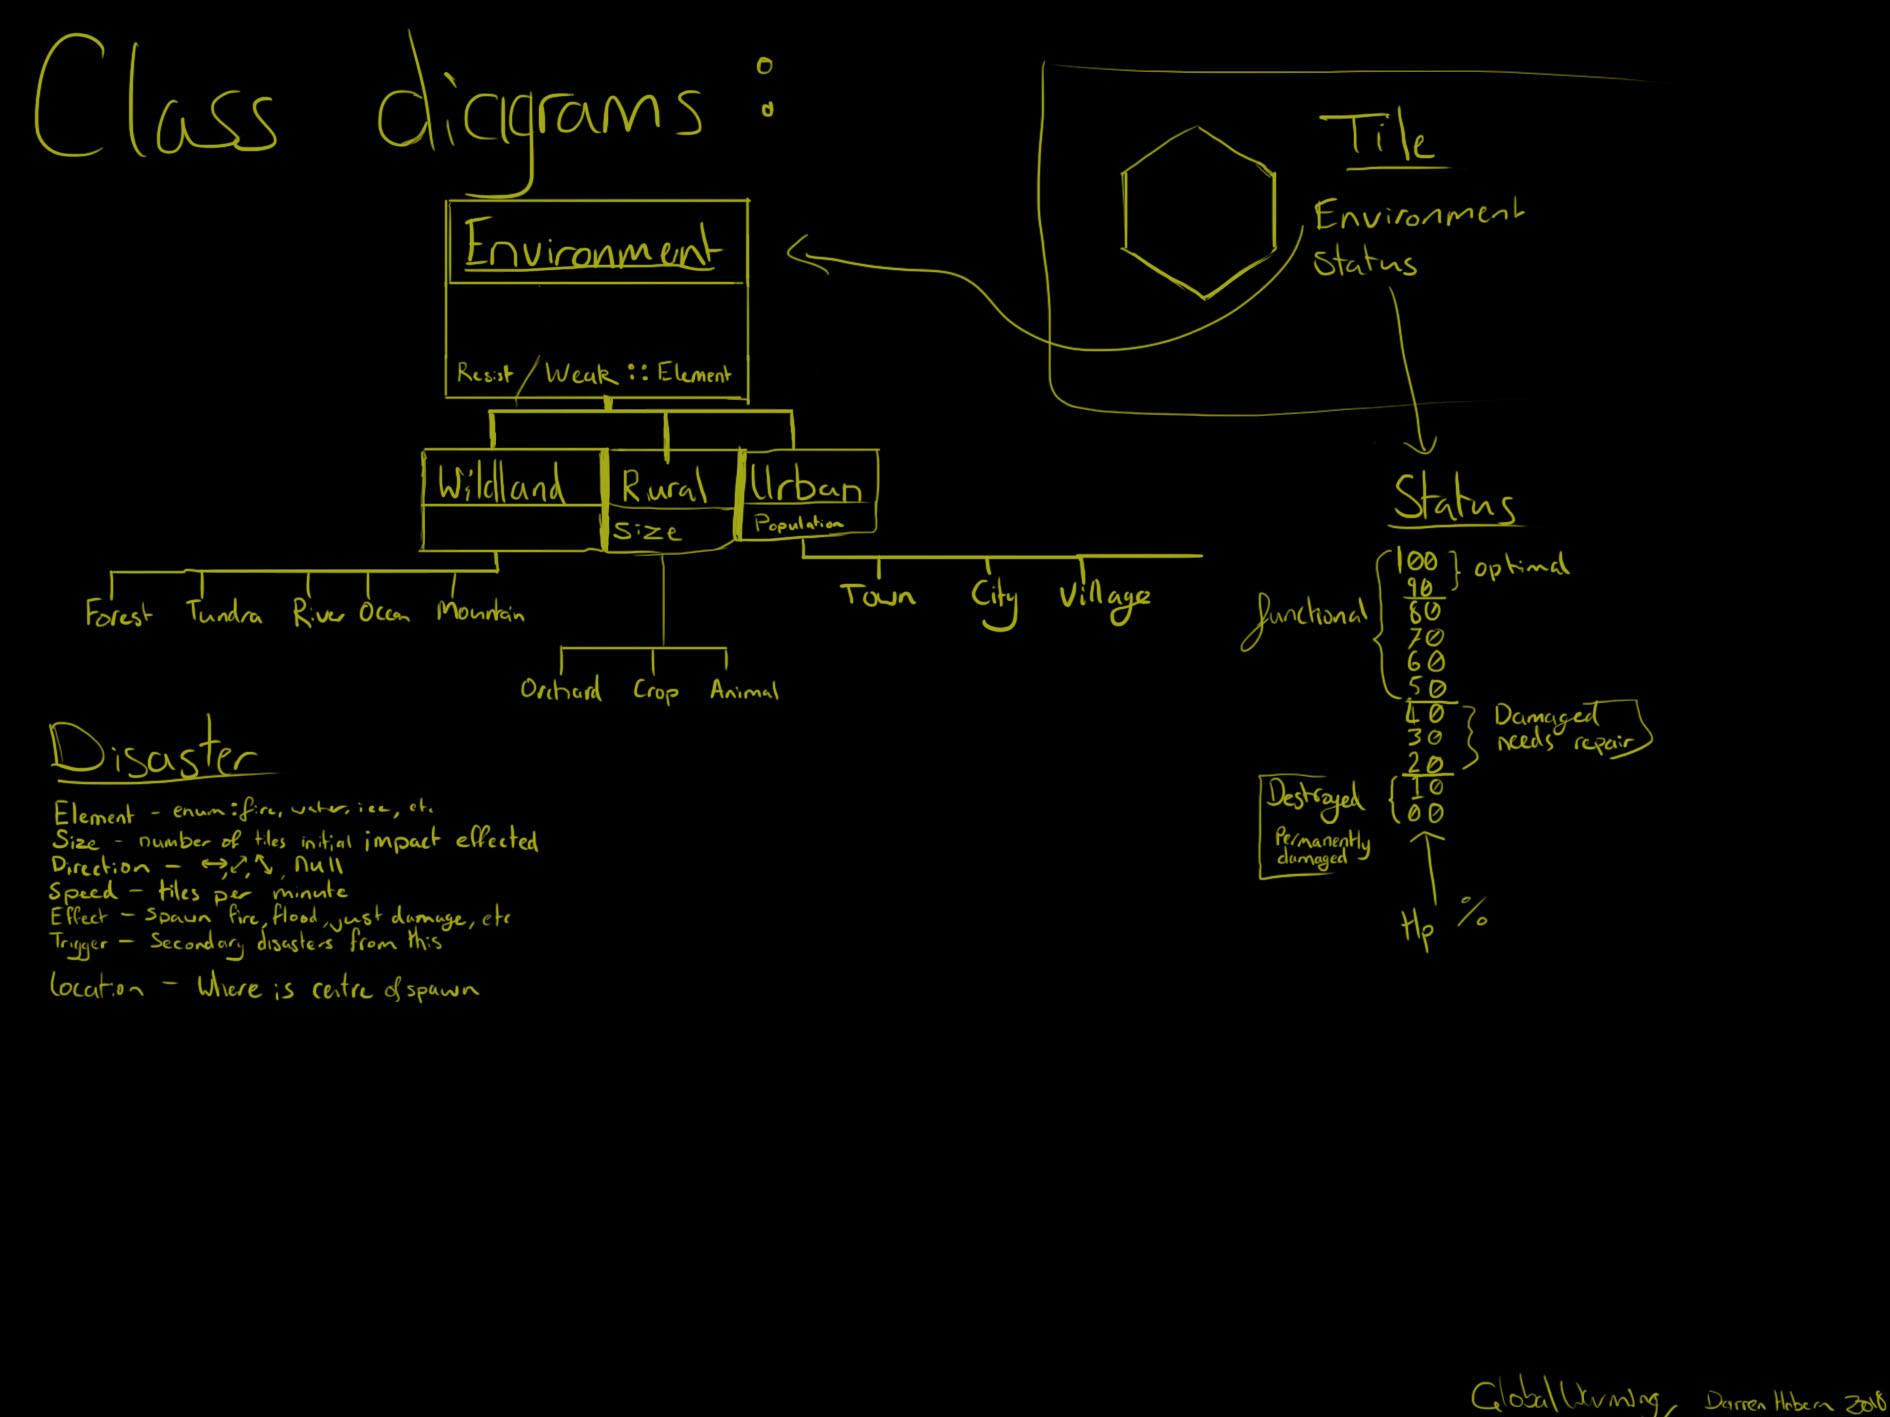 Class diagrams :
Environment
Resist / Weak :: Element
Wildland
Rural
Size
Urban
Population
Forest Tundra River Ocean Mountain
Orchard Crop Animal
Town City Village
Tile
Environment
Status
Status
100
90
80
70
60
50
40
30
20
10
00
optimal
functional
Damaged
needs repair
Destroyed
Permanently
damaged
Hp %
Disaster
Element - enum: fire, water, ice, etc
Size - number of tiles initial impact effected
Direction - ↔, ⤢, ⤡, Null
Speed - tiles per minute
Effect - Spawn fire, flood, just damage, etc
Trigger - Secondary disasters from this
Location - Where is centre of spawn
Global Warming, Darren 2018